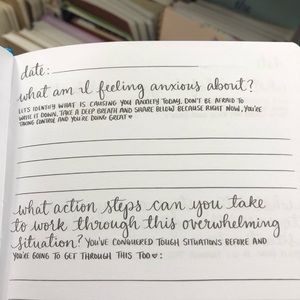 date:
what am I feeling anxious about?
LET'S IDENTIFY WHAT IS CAUSING YOU ANXIETY TODAY. DON'T BE AFRAID TO
WRITE IT DOWN. TAKE A DEEP BREATH AND SHARE BELOW BECAUSE RIGHT NOW, YOU'RE
TAKING CONTROL AND YOU'RE DOING GREAT ♥
what action steps can you take
to work through this overwhelming
situation? YOU'VE CONQUERED TOUGH SITUATIONS BEFORE AND
YOU'RE GOING TO GET THROUGH THIS TOO ♥: